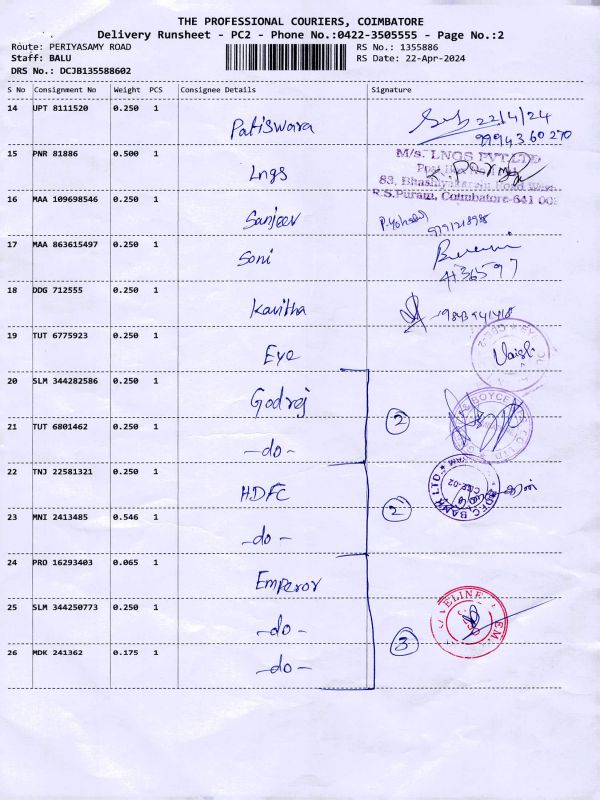 THE PROFESSIONAL COURIERS, COIMBATORE
Delivery Runsheet - PC2 - Phone No.:0422-3505555 - Page No.:2
Route: PERIYASAMY ROAD
RS No.: 1355886
Staff: BALU
RS Date: 22-Apr-2024
DRS No.: DCJB135588602
S No Consignment No Weight PCS Consignee Details Signature
14 UPT 8111520 0.250 1 Patiswara 22/4/24
9994360270
15 PNR 81886 0.500 1 Lngs M/s. LNGS PVT LTD
83, Road
R.S.Puram, Coimbatore-641 002
16 MAA 109698546 0.250 1 Sanjeev
17 MAA 863615497 0.250 1 Soni
18 DDG 712555 0.250 1 Kavitha
19 TUT 6775923 0.250 1 Eye
20 SLM 344282586 0.250 1 Godrej
21 TUT 6801462 0.250 1 -do- 2
22 TNJ 22581321 0.250 1 HDFC HDFC BANK LTD.
23 MNI 2413485 0.546 1 -do- 2
24 PRO 16293403 0.065 1 Emperor
25 SLM 344250773 0.250 1 -do- 3
26 MDK 241362 0.175 1 -do-